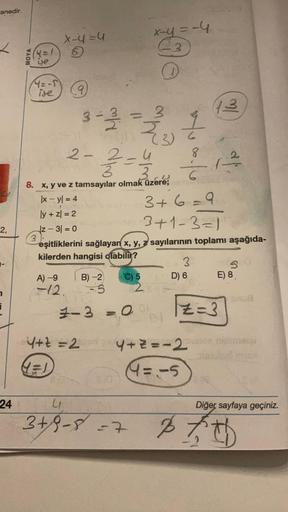 anedir.
x-4=4
x-4=-4
MOYA
y=1
ise
5
-3
y=-5
ise
9
1
3 - 3/2 = 3/2
(3)
9/6
13
2 - 2/3 = 4/3
8/6
8. x, y ve z tamsayılar olmak üzere;
|x – y| = 4
3+6=9
|y + z| = 2
3+1-3=1
2,
|z – 3| = 0
3
eşitliklerini sağlayan x, y, z sayılarının toplamı aşağıda-
kilerden hangisi olabilir?
3
5
A) –9 B) –2 C) 5 D) 6 E) 8
-12
-5
2
z-3 = 0
z=3
y+z=2
y+z=-2
y=1
y=-5
24
4
Diğer sayfaya geçiniz.
3+9-8=7
-2